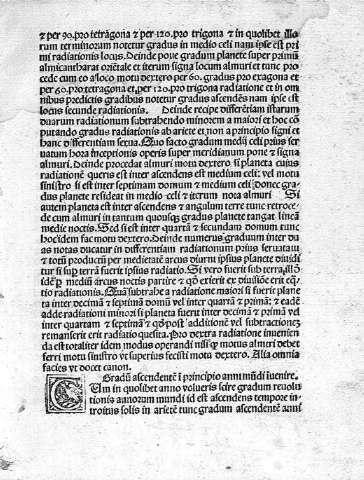 ⁊ per 90. pro tetragona ⁊ per 120. pro trigona ⁊ in quolibet illo
rum terminorum notetur gradus in medio celi nam ipse est pri
mi radiationis locus. Deinde pone gradum planete super primũ
almicantharat oriẽtale et iterum signa locum almuri et tunc pro
cede cum eo a loco motu dextero per 60. gradus pro exagona et
per 90. pro tetragona et per 120. pro trigona radiatione et in om
nibus predictis gradibus notetur gradus ascendẽs nam ipse est
locus secunde radiationis. Deinde recipe differẽtiam istarum
duarum radiationum subtrahendo minorem a maiori et hoc cõ
putando gradus radiationis ab ariete et non a principio signi et
hanc differentiam serua. Quo facto gradum medij celi prius ser
uatum hora inceptionis operis super meridianum pone ⁊ signa
almuri. Deinde procedat almuri motu dextero si planeta cuius
radiationẽ queris est inter ascendens est medium celi: vel motu
sinistro si est inter septimam domum ⁊ medium celi: donec gra
dus planete resideat in medio celi ⁊ iterum nota almuri Si
autem planeta est inter ascendens ⁊ angulum terre tunc retroce
de cum almuri in tantum quousqꝫ gradus planete tangat lineã
medie noctis. Qđ si est inter quartã ⁊ secundam domum tunc
hoc idem fac motu dextero. Deinde numerus graduum inter du
as notas ducatur in differentiam radiationum prius seruatam
et totũ productũ per medietatẽ arcus diurni ipsius planete diuidi
tur si sup terrã fuerit ipsius radiatio. Si vero fuerit sub terra
idẽ mediũ arcus noctis partire ⁊ qđ exierit ex diuisiõe erit
tio radiationis. subtrahe a radiatione maiori si fuerit plane
ta inter decimã ⁊ septimã domũ vel inter quartã ⁊ primã: ⁊ eadẽ
adde radiationi minori si planeta fuerit inter decimã ⁊ primã vel
inter quartam ⁊ septimã ⁊ post additionẽ vel subtractionẽ
remanserit erit radiatio quesita. Pro dextera radiatione inuenien
da est totaliter idem modus operandi nisi motus almuri debet
ferri motu sinistro vt superius fecisti motu dextero. Alia omnia
facies vt docet canon.
Gradũ ascendentẽ ĩ principio anni mũdi ĩuenire.
Cum in quolibet anno volueris scire gradum reuolu
tionis annorum mundi id est ascendens tempore in
troitus solis in arietẽ tunc gradum ascendentẽ anni